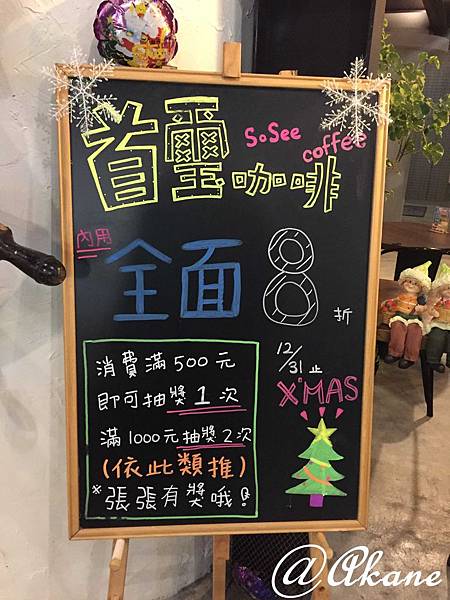 首璽咖啡
SoSee
coffee
內用
全面8折
12/31止
X'MAS
消費滿500元
即可抽獎1次
滿1000元抽獎2次
(依此類推)
*張張有獎哦!
@Akane